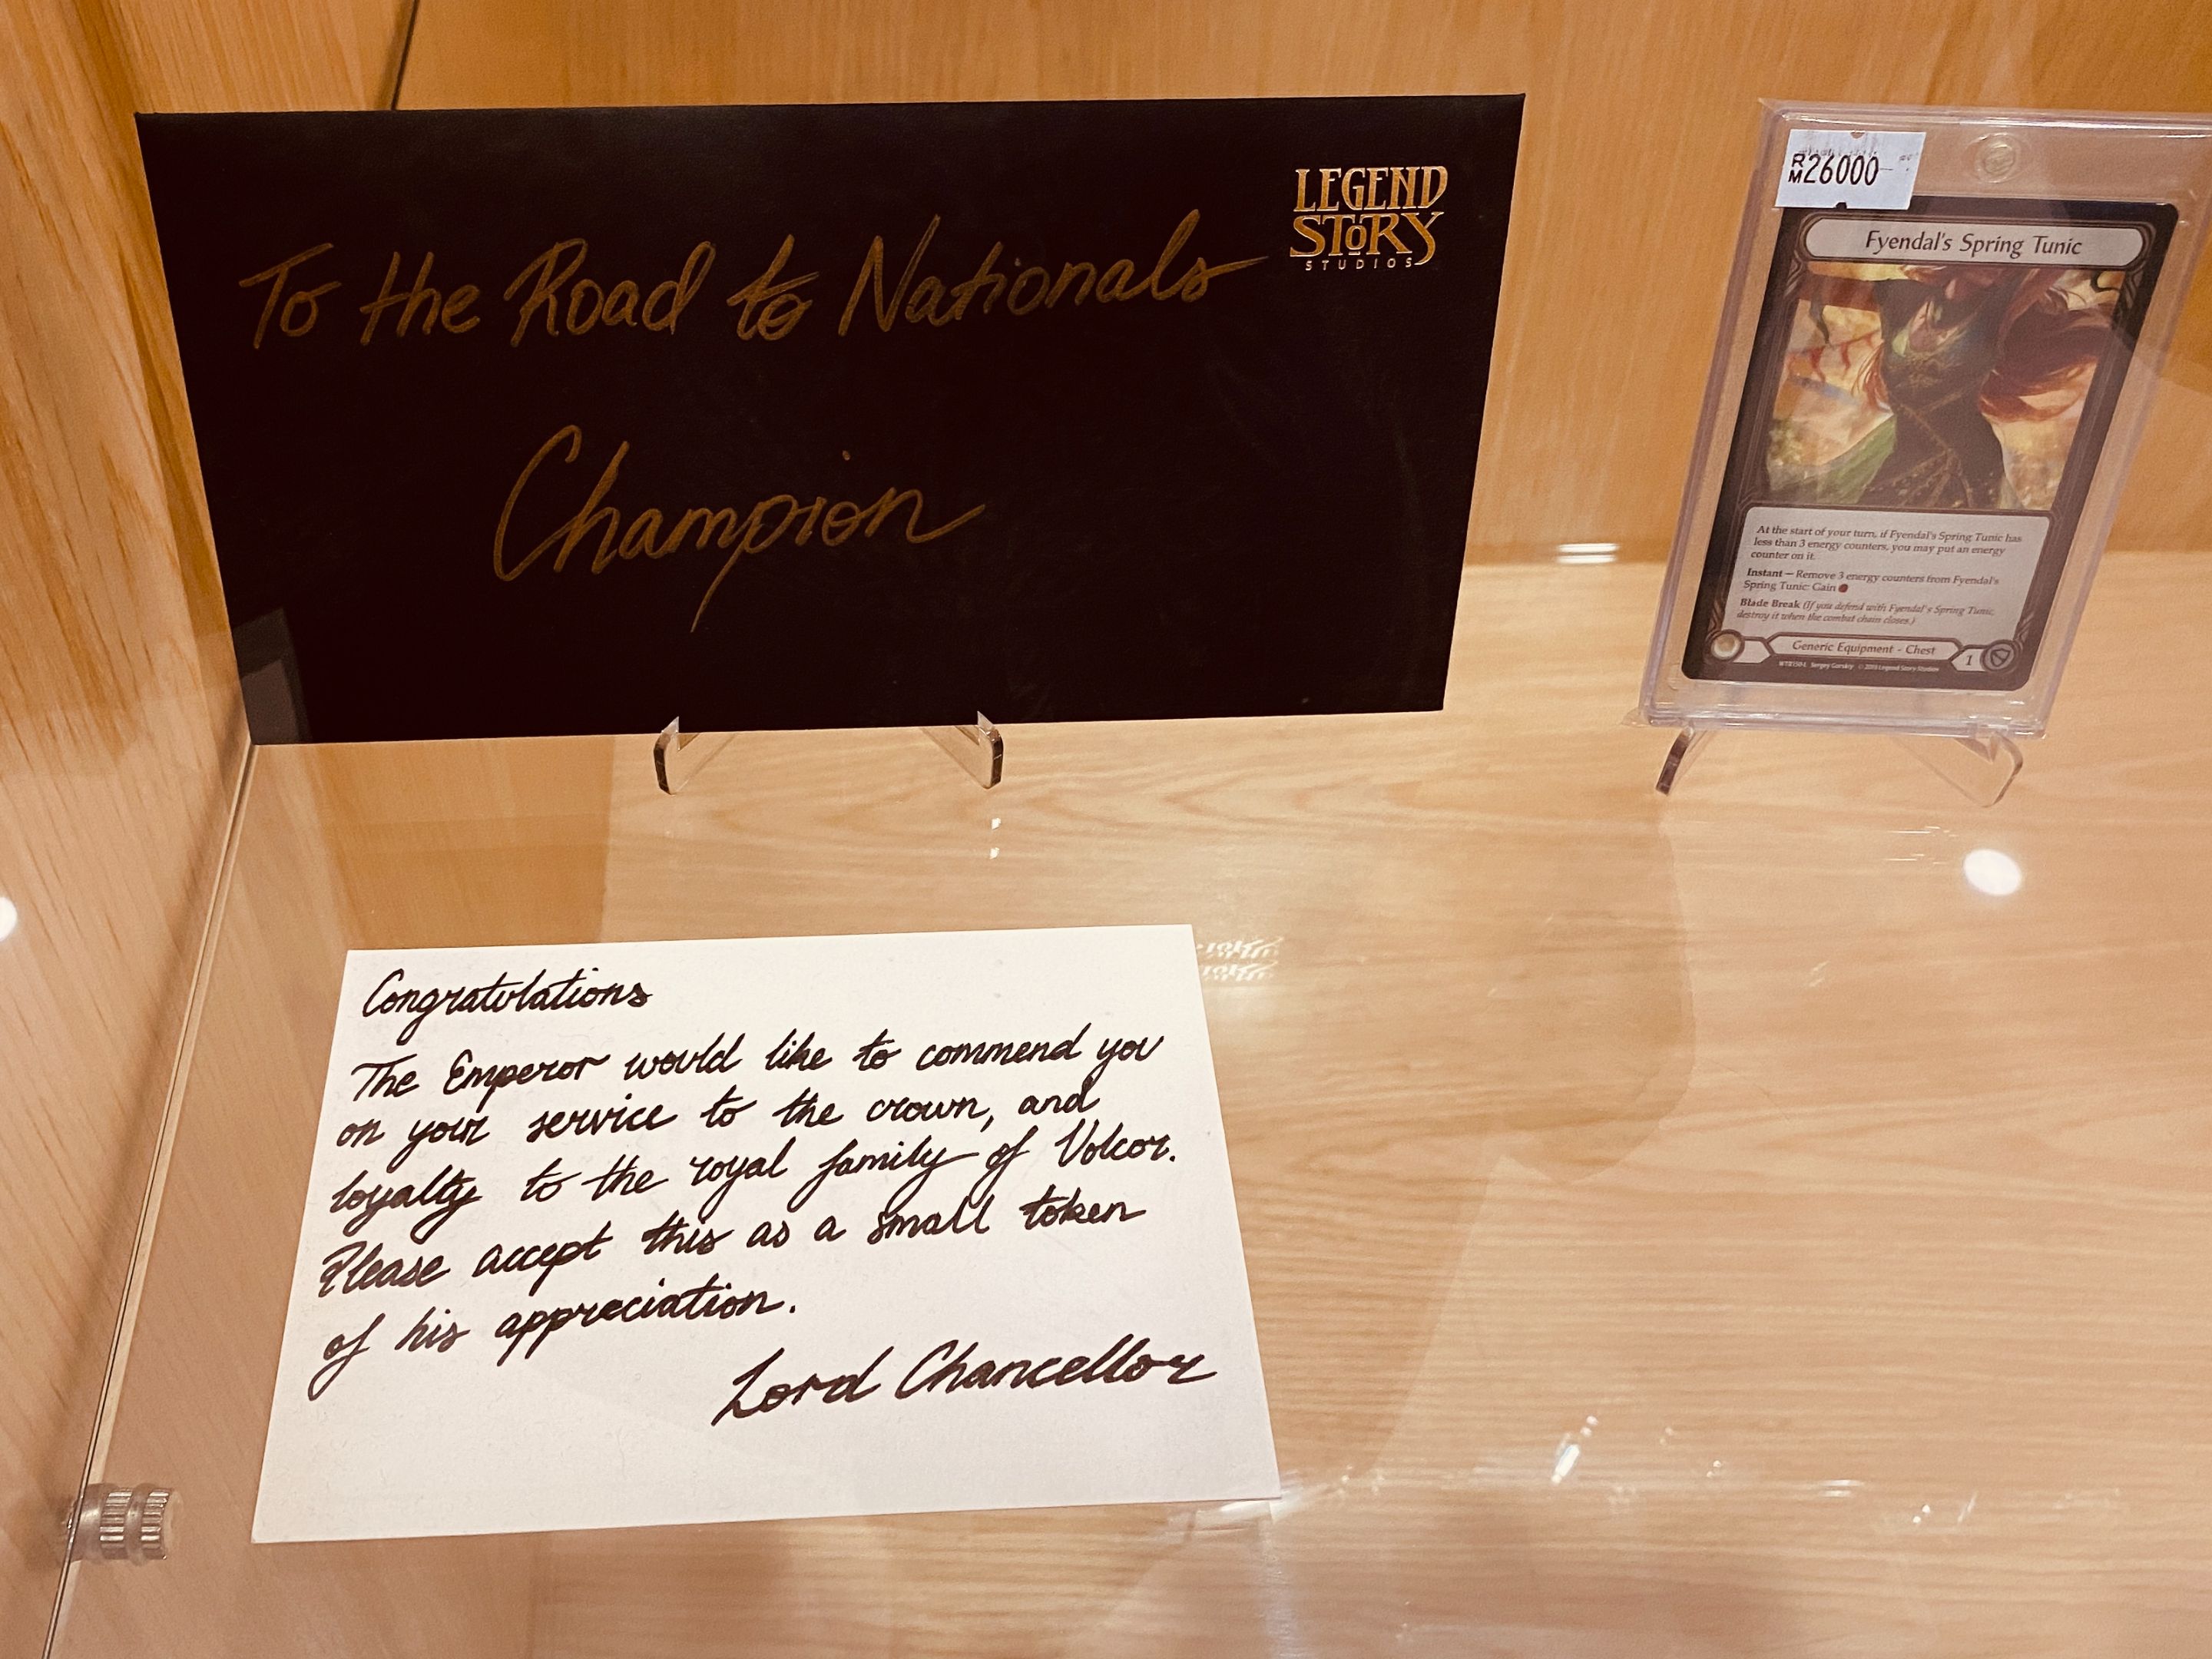 To the Road to Nationals
Champion
LEGEND
STORY
STUDIOS
RM26000
Fyendal's Spring Tunic
At the start of your turn, if Fyendal's Spring Tunic has
less than 3 energy counters, you may put an energy
counter on it.
Instant – Remove 3 energy counters from Fyendal's
Spring Tunic: Gain
Blade Break (If you defend with Fyendal's Spring Tunic,
destroy it when the combat chain closes.)
Generic Equipment - Chest
1
© 2019 Legend Story Studios
Congratulations
The Emperor would like to commend you
on your service to the crown, and
loyalty to the royal family of Volcor.
Please accept this as a small token
of his appreciation.
Lord Chancellor